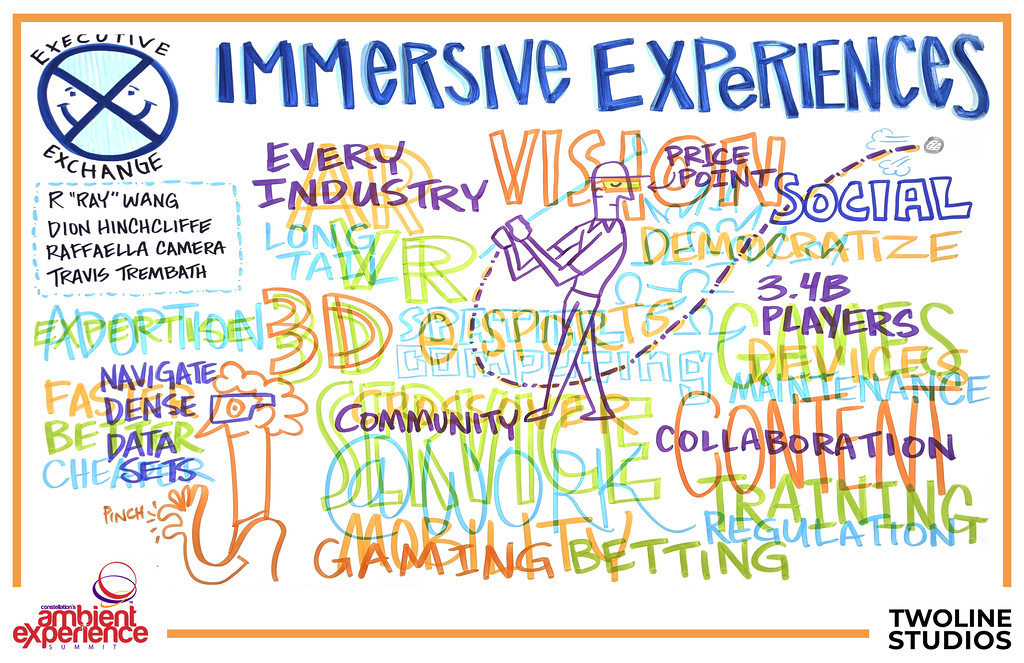 EXECUTIVE
EXCHANGE
IMMERSIVE EXPERIENCES
R "RAY" WANG
DION HINCHCLIFFE
RAFFAELLA CAMERA
TRAVIS TREMBATH
EVERY
INDUSTRY
AR
LONG
TAIL
VR
VISION
PRICE
POINT
SOCIAL
DEMOCRATIZE
3.4B
PLAYERS
EXPERTISE
ADOPTION
3D
ESPORTS
COMPUTING
DEVICES
MAINTENANCE
FASTER
BETTER
CHEAPER
NAVIGATE
DENSE
DATA
SETS
PINCH
COMMUNITY
SERVICE
WORK
CONTENT
COLLABORATION
TRAINING
REGULATION
MOBILITY
GAMING BETTING
constellation's
ambient
experience
SUMMIT
TWOLINE
STUDIOS